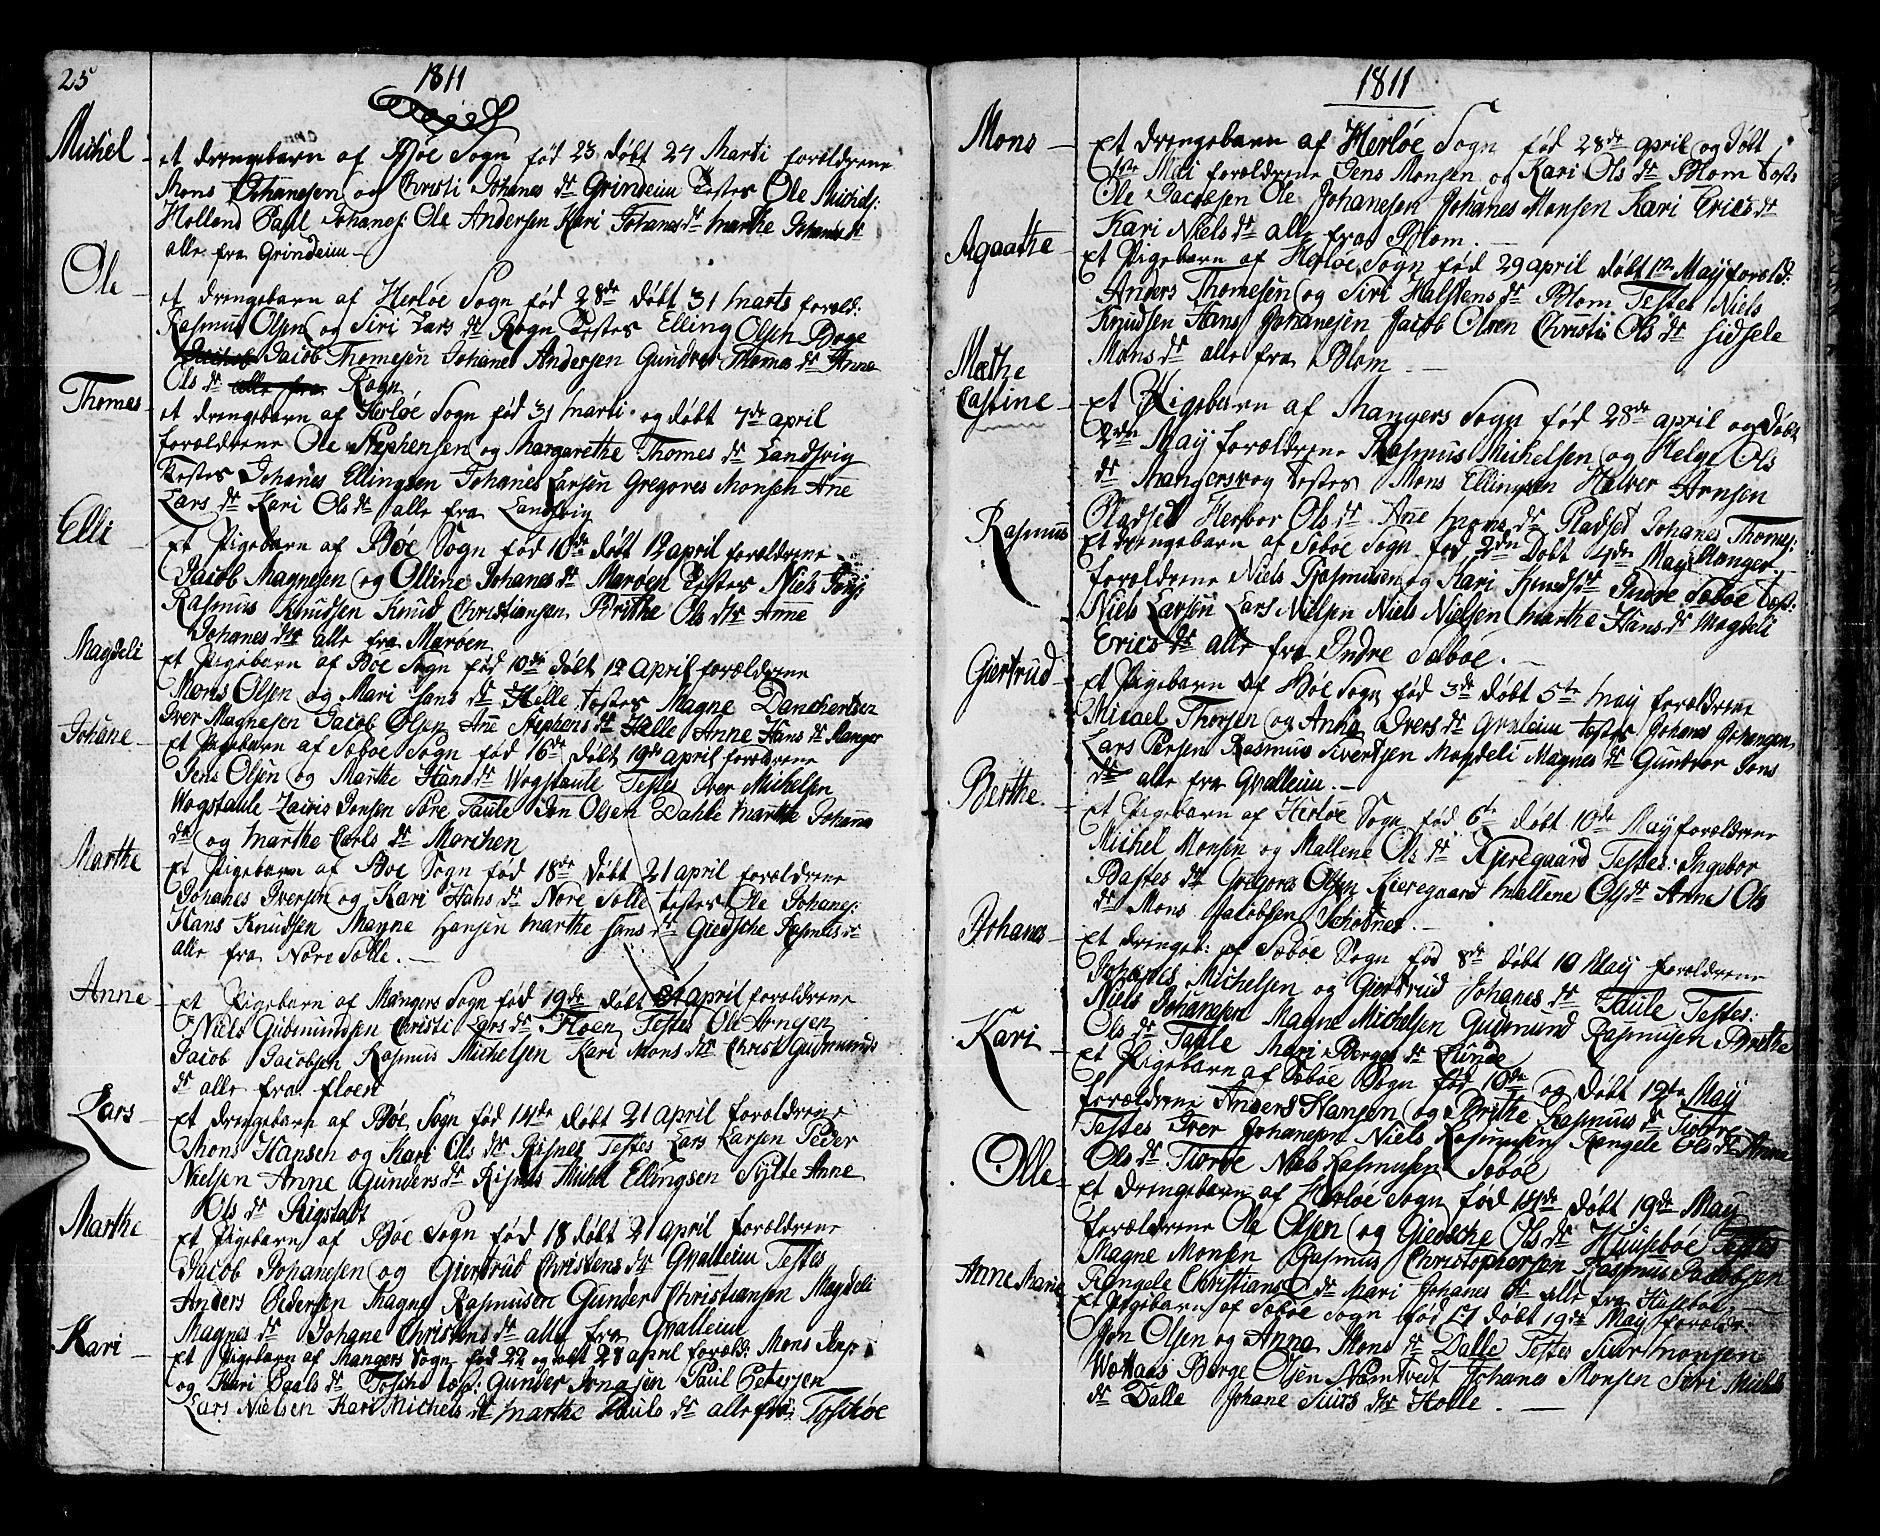 25
1811
Michel
et drengebarn af Bøe Sogn fød 23 døbt 24 Marti forældrene
Mons Johanesen og Christi Johanes dr Grindeim Testes Ole Michels:
Holland Paul Johanes: Ole Andersen Kari Johanes dr Marthe Johanes dr
alle fra Grindeim
Ole
et drengebarn af Herløe Sogn fød 28de døbt 31 Marts foræld:
Rasmus Olsen og Siri Lars dr Rogn Testes Elling Olsen Boge
Jacob Thomesen Johanes Andersen Gundver Thomas dr Anne
Ols dr alle fra Rogn
Thomes
et drengebarn af Herløe Sogn fød 31 Marti og døbt 7de april
forældrene Ole Stephensen og Margarethe Thomes dr Landsvig
Testes Johanes Ellingsen Johanes Larsen Gregores Monsen Ane
Lars dr Kari Ols dr alle fra Landsvig
Elli
Et Pigebarn af Bøe Sogn fød 10de døbt 12 april forældrene
Jacob Magnesen og Olline Johanes dr Marøen Testes Niels
Rasmus Knudsen Knud Christiansen Brithe Ols dr Anne
Johanes dr alle fra Marøen
Magdeli
Et Pigebarn af Bøe Sogn fød 10de døbt 12 april forældrene
Mons Olsen og Mari Hans dr Helle testes Magne Danchertsen
Iver Magnesen Jacob Olsen Ane Stephens dr Helle Anne Hans dr Manger
Johane
Et Pigebarn af Sæbøe Sogn fød 16de døbt 19de april forældrene
Jens Olsen og Marthe Hans dr Wogstaule Testes Iver Michelsen
Wogstaule Zairis Jensen Søre Taule Jon Olsen Dahle Marthe Johans
dr og Marthe Carls dr Marchen
Marthe
Et Pigebarn af Bøe Sogn fød 18de døbt 21 april forældrene
Johanes Iversen og Kari Hans dr Nore Solle testes Ole Johanes:
Hans Knudsen Magne Hansen Marthe Hans dr Giedsche Rasmus dr
alle fra Nore Solle.
Anne
Et Pigebarn af Mangers Sogn fød 19de døbt 21 april forældrene
Niels Gudmundsen Christi Lars dr Floen Testes Ole Arnesen
Jacob Jacobsen Rasmus Michelsen Kari Mons dr Christi Gudmunds
dr alle fra floen
Lars
Et drengebarn af Bøe Sogn fød 14de døbt 21 april forældrene
Mons Hansen og Kari Ols dr Risnes Testes Lars Larsen Peder
Nielsen Anne Gunders dr Risnes Michel Ellingsen Sylte Anne
Ols dr Rigstadt
Marthe
Et Pigebarn af Bøe Sogn fød 18 døbt 21 april forældrene
Jacob Johanesen og Giertrud Christens dr Qvalleim Testes
Anders Pedersen Magne Rasmusen Gunder Christiansen Magdeli
Magnes dr Johane Christens dr alle fra Qvalleim
Kari
Et Pigebarn af Mangers Sogn fød 22 og døbt 28 april foræld: Mons
og Kari Paals dr Toschøe test: Gunder Paul Petersen
Lars Nielsen Kari Michels dr Marthe Pauls dr alle fra Toschøe
1811
Mons
Et drengebarn af Herløe Sogn fød 28de april og døbt
1ste Mai forældrene Jens Monsen og Kari Ols dr Blom test:
Ole Jacobsen Ole Johanesen Johanes Monsen Kari Erics dr
Kari Niels dr alle fra Blom.
Agaathe
Et Pigebarn af Herløe Sogn fød 29 april døbt 1te May foræld:
Anders Thomesen og Siri Halstens dr Blom Testes Niels
Knudsen Hans Johanesen Jacob Olsen Christi Ols dr Sidsele
Mons dr alle fra Blom
Mæthe
Castine
Et Pigebarn af Mangers Sogn fød 28de april og døbt
2den May forældrene Rasmus Michelsen og Helge Ols
dr Mangersvog testes Mons Ellingsen Halver Arnsen
Pladsed Herbor Ols dr Ane Mons dr Pladsed Johanes Thomes:
Manger.
Rasmus
Et drengebarn af Sæbøe Sogn fød 2den døbt 4de May
forældrene Niels Rasmusen og Kari Knuds dr Indre Sæbøe test:
Niels Larsen Lars Nielsen Niels Nielsen Marthe Hans dr Magdeli
Erics dr alle fra Indre Sæbøe.
Giertrud
Et Pigebarn af Bøe Sogn fød 3de døbt 5te May forældrene
Micael Thorsen og Anna Ivers dr Qvaleim testes Johanes Johansen
Lars Persen Rasmus Sivertsen Magdeli Magnes dr Gundvor Jons
dr alle fra Qvalleim.
Berthe.
Et Pigebarn af Herløe Sogn fød 6t døbt 10de May forældrene
Michel Monsen og Mallene Ols dr Kjeregaard Testes: Ingebor
Bastes dr Grigores Olsen Kieregaard Mallene Ols dr Anne Ols
dr Mons Jacobsen Schodnes.
Johanes
Et drengeb: af Sæbøe Sogn fød 8de døbt 10 May forældrene
Johanes Michelsen og Giertrud Johanes dr Taule Testes:
Niels Johanesen Magne Michelsen Gudmund Rasmusen Brethe
Ols dr Taule Mari Berges dr Sunde
Kari
Et Pigebarn af Sæbøe Sogn fød 10de og døbt 12te May
forældrene Anders Hansen og Brithe Rasmus dr Tiøre
Testes Iver Johanesen Niels Rasmusen Rangele Ols dr Anna
Ols dr Tiørøe Niels Rasmusen Sæbøe
Olle
Et drengebarn af Herløe Sogn fød 14de døbt 19de May
forældrene Ole Olsen og Giedsche Ols dr Huusebøe Testes
Magne Monsen Rasmus Christophersen Rasmus Jacobsen
Rangele Christians dr Mari Johanes dr alle fra Husebøe.
Anne Marie
Et Pigebarn af Sæbøe Sogn fød 17 døbt 19de May forældr:
Jon Olsen og Anna Mons dr Dalle Testes Siur Monsen
Berge Olsen Johanes Monsen Siri Michels
dr Dalle Johane Siurs dr Holle.